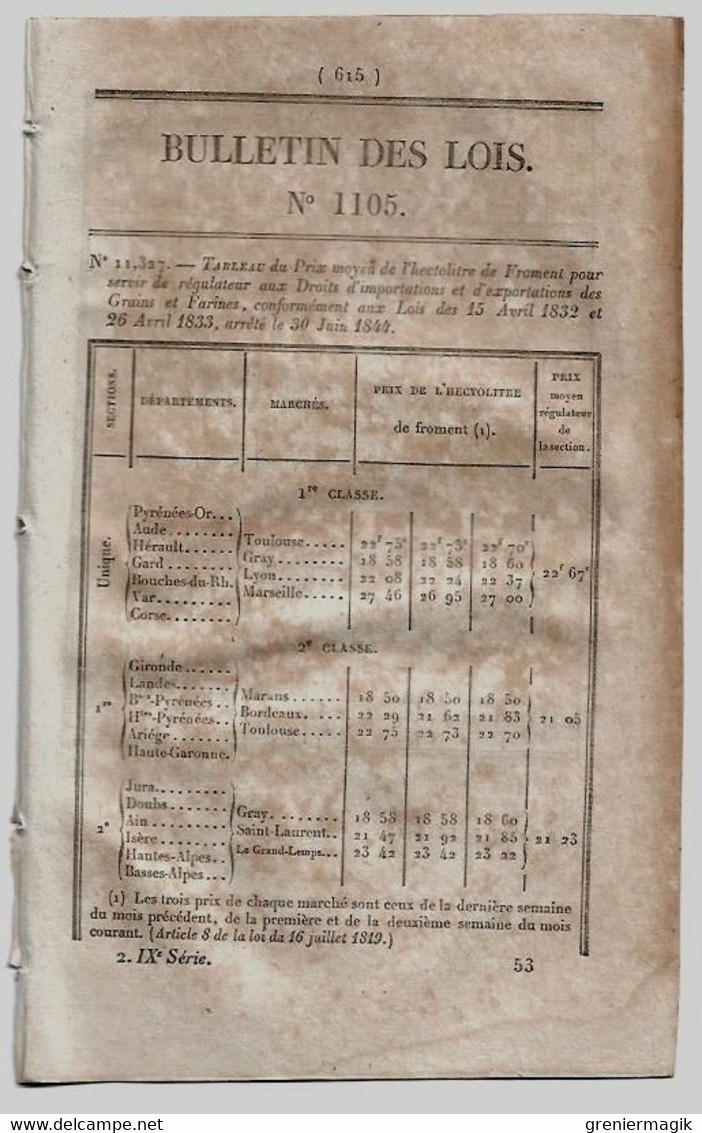 ( 615 )
BULLETIN DES LOIS.
N° 1105.
N° 11,327. — TABLEAU du Prix moyen de l'hectolitre de Froment pour
servir de régulateur aux Droits d'importations et d'exportations des
Grains et Farines, conformément aux Lois des 15 Avril 1832 et
26 Avril 1833, arrêté le 30 Juin 1844.
SECTIONS. DÉPARTEMENTS. MARCHÉS. PRIX DE L'HECTOLITRE de froment (1). PRIX moyen régulateur de la section.
1re CLASSE.
Unique.
Pyrénées-Or...
Aude........
Hérault......
Gard........
Bouches-du-Rh.
Var.........
Corse........
Toulouse..... 22f 75c 22f 73c 22f 70c
Gray........ 18 58 18 58 18 60
Lyon........ 22 08 22 24 22 37
Marseille..... 27 46 26 95 27 00
22f 67c
2e CLASSE.
1re
Gironde......
Landes.......
Bses-Pyrénées..
Htes-Pyrénées..
Ariége.......
Haute-Garonne.
Marans...... 18 50 18 50 18 50
Bordeaux.... 22 29 21 62 21 83
Toulouse..... 22 75 22 73 22 70
21 05
2e
Jura.........
Doubs.......
Ain.........
Isère........
Hautes-Alpes..
Basses-Alpes...
Gray........ 18 58 18 58 18 60
Saint-Laurent.. 21 47 21 92 21 85
Le Grand-Lemps... 23 42 23 42 23 22
21 23
(1) Les trois prix de chaque marché sont ceux de la dernière semaine
du mois précédent, de la première et de la deuxième semaine du mois
courant. (Article 8 de la loi du 16 juillet 1819.)
2. IXe Série. 53
www.delcampe.net
greniermagik